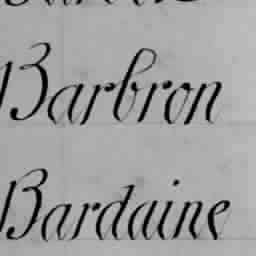 Barbron
Bardaine